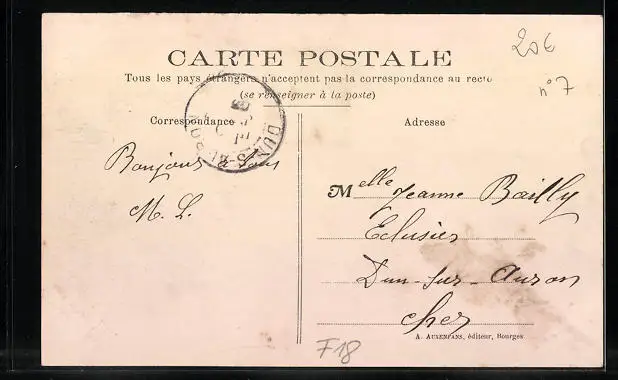 CARTE POSTALE
Tous les pays étrangers n'acceptent pas la correspondance au recto
(se renseigner à la poste)
20€
n°7
Correspondance
Adresse
Bonjour à tous
M. L.
Melle Jeanne Bailly
Eclusier
Dun-sur-Auron
Cher
A. AUXENFANS, éditeur, Bourges
F18
DUN-S-AU